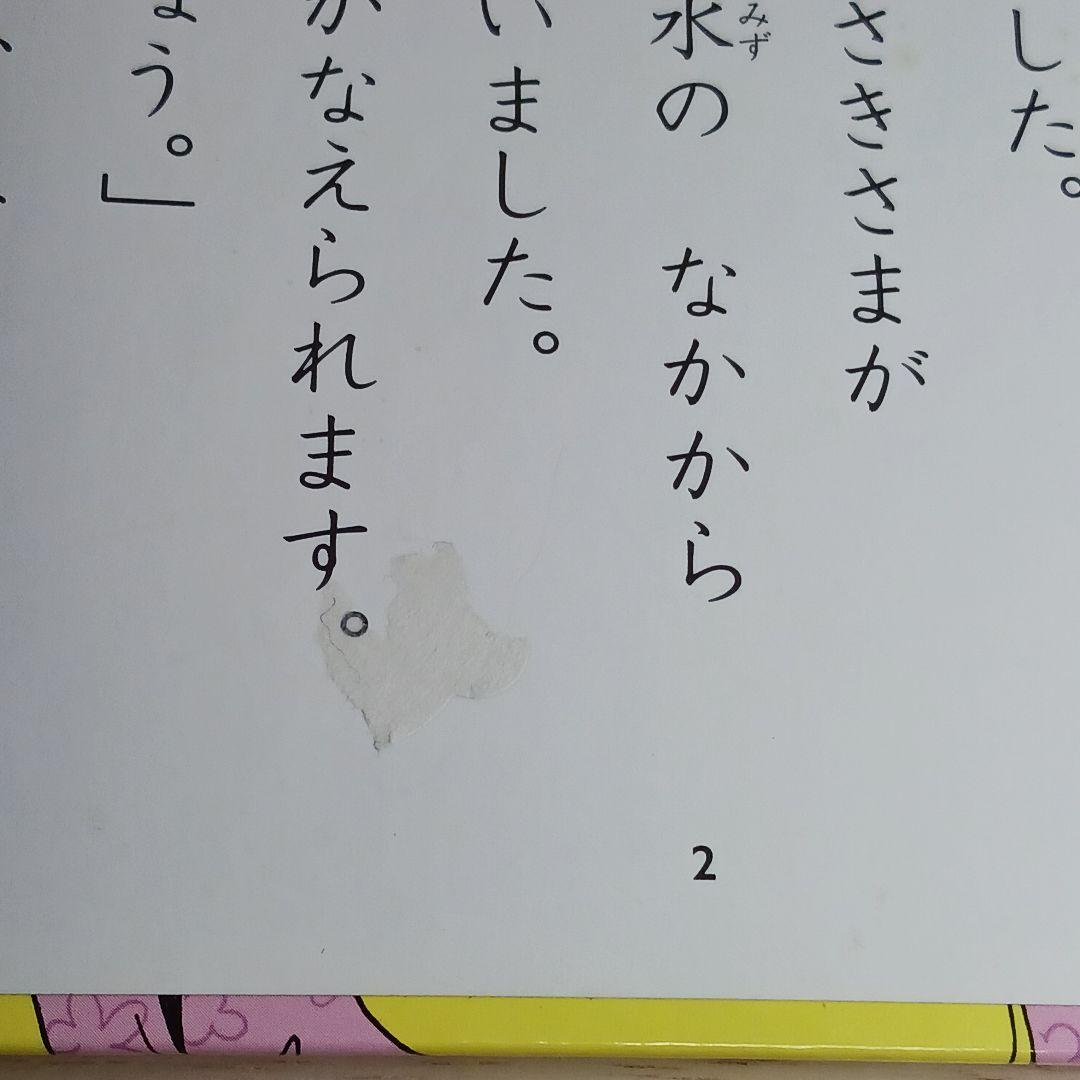 した。
さきさまが
水の　なかから
みず
いました。
かなえられます。
ょう。」
2